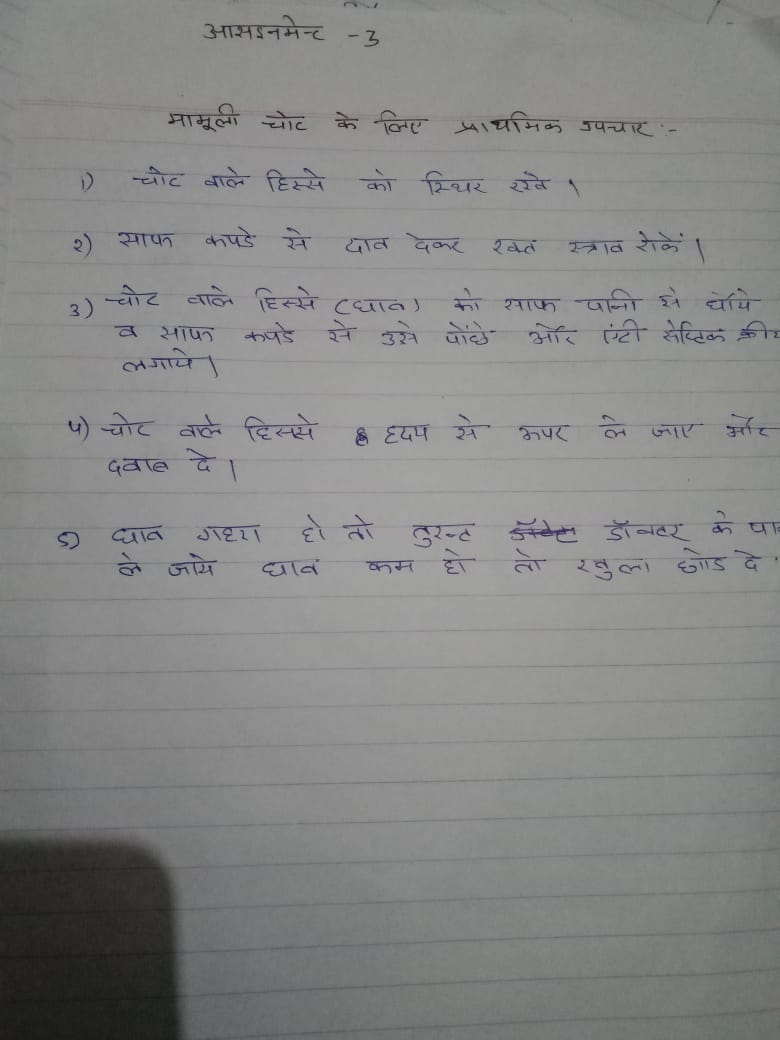 आसइनमेन्ट -3
मामूली चोट के लिए प्राथमिक उपचार :-
1) चोट वाले हिस्से को स्थिर रखे।
2) साफ कपडे से दाव देकर रक्त स्त्राव रोकें।
3) चोट वाले हिस्से (घाव) को साफ पानी से धोंये
व साफ कपडे से उसे पोंछे और एंटी सेप्टिक क्रीम
लगाये।
4) चोट वाले हिस्से हृदय से ऊपर ले जाए और
दवाब दे।
5) घाव गहरा हो तो तुरन्ट डॉक्टर के पा
ले जाये घाव कम हो तो खुला छोड दे